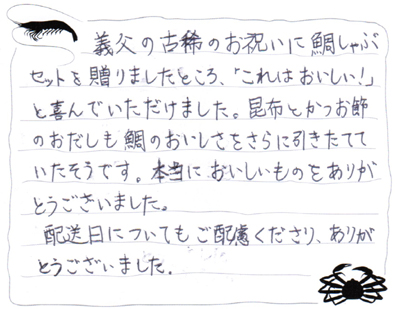 義父の古稀のお祝いに鯛しゃぶ
セットを贈りましたところ、「これはおいしい！」
と喜んでいただけました。昆布とかつお節
のおだしも鯛のおいしさをさらに引きたてて
いたそうです。本当においしいものをありが
とうございました。
配送日についてもご配慮くださり、ありが
とうございました。